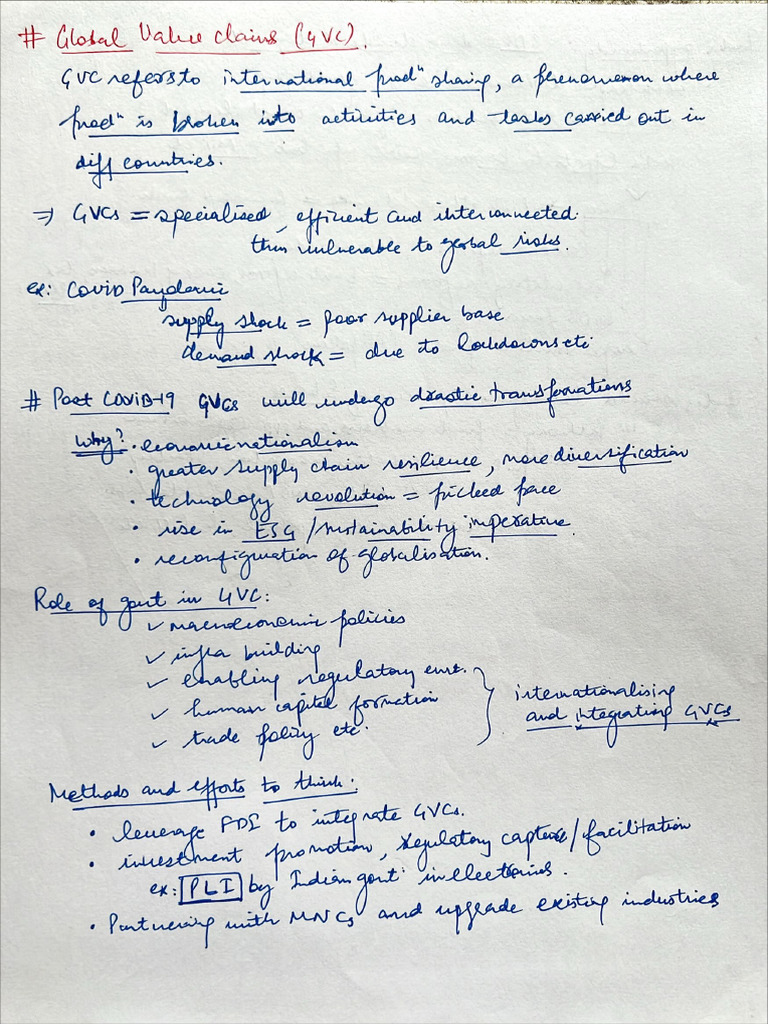 # Global Value chains (GVC).
GVC refers to international prodⁿ sharing, a phenomenon where
prodⁿ is broken into activities and tasks carried out in
diff countries.
⇒ GVCs = specialised, efficient and interconnected
thus vulnerable to global risks.
ex: COVID Pandemic
supply shock = poor supplier base
demand shock = due to lockdowns etc
# Post COVID-19 GVCs will undergo drastic transformations
Why? • economic nationalism
• greater supply chain resilience, more diversification
• technology revolution = picked pace
• rise in ESG / sustainability imperative.
• reconfiguration of globalisation.
Role of govt in GVC:
✓ macroeconomic policies
✓ infra building
✓ enabling regulatory envt.
✓ human capital formation
✓ trade policy etc.
internationalising
and integrating GVCs
Methods and efforts to think:
• leverage FDI to integrate GVCs.
• investment promotion, regulatory capture/facilitation
ex: PLI by Indian govt in electronics.
• Partnering with MNCs and upgrade existing industries